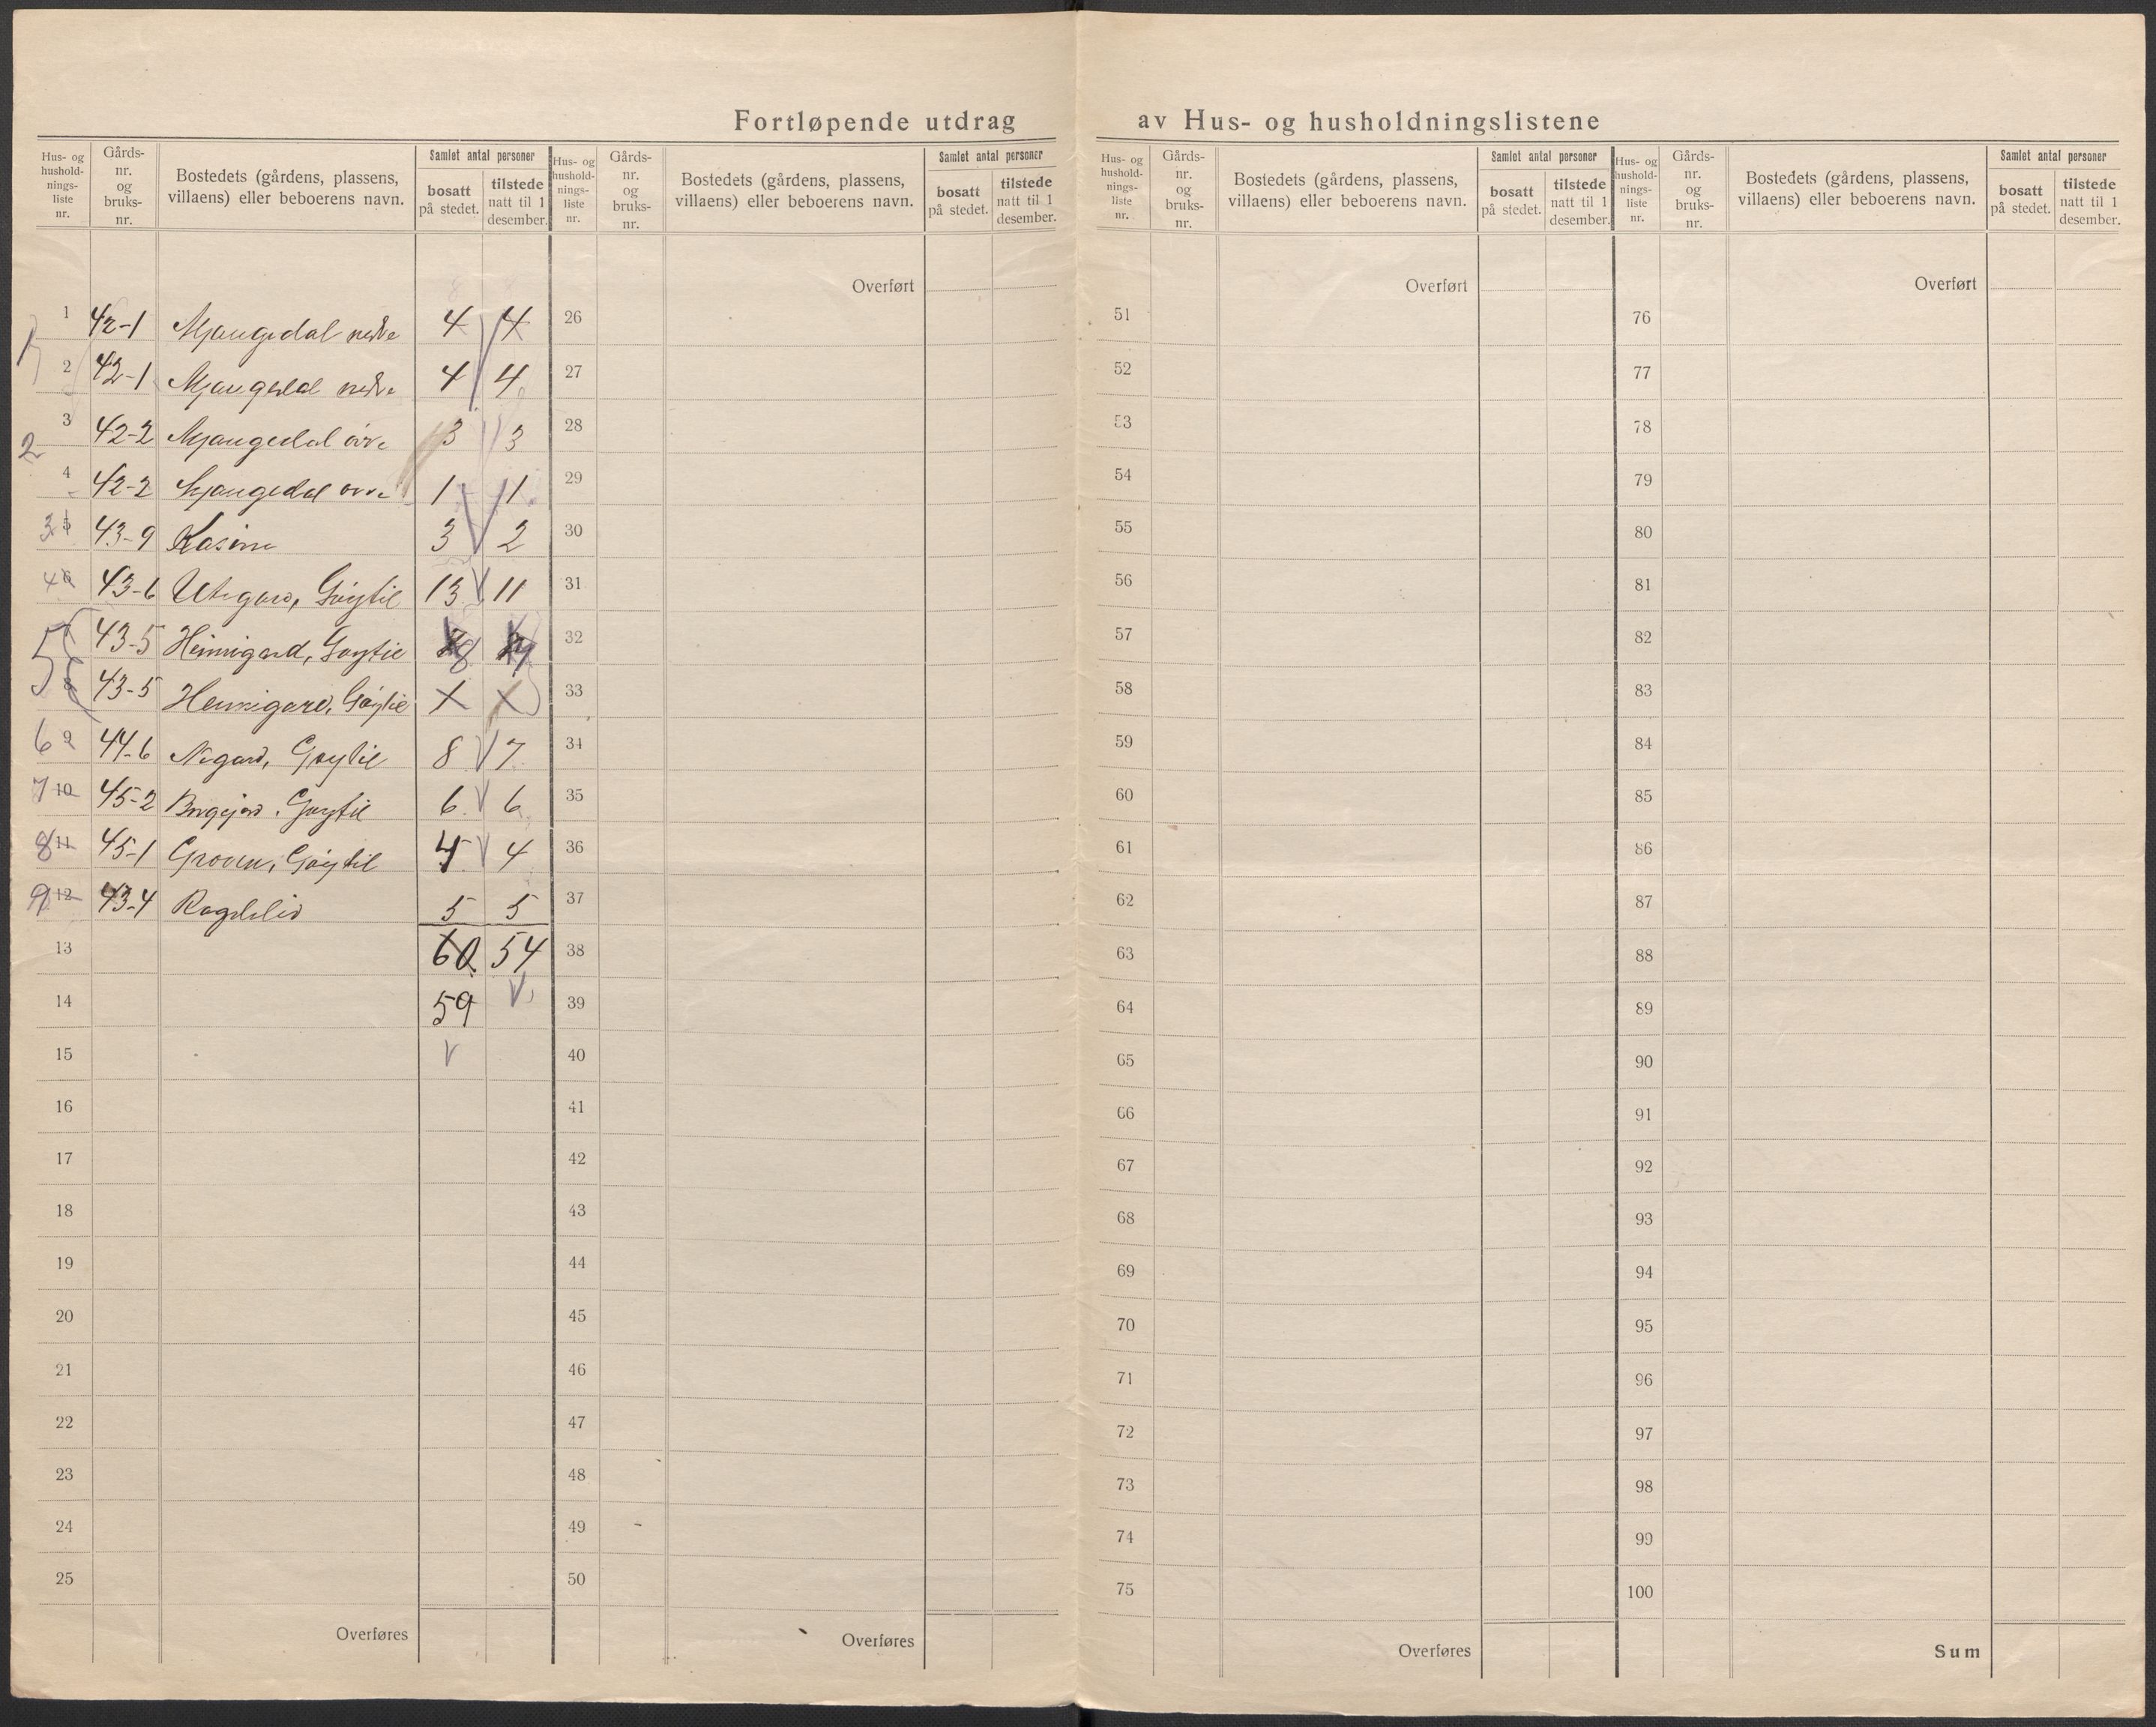 Fortløpende utdrag av Hus- og husholdningslistene
Hus- og hushold-nings-liste nr. Gårds-nr. og bruks-nr. Bostedets (gårdens, plassens, villaens) eller beboerens navn. Samlet antal personer bosatt på stedet. tilstede natt til 1 desember.
Hus- og hushold-nings-liste nr. Gårds-nr. og bruks-nr. Bostedets (gårdens, plassens, villaens) eller beboerens navn. Samlet antal personer bosatt på stedet. tilstede natt til 1 desember.
Hus- og hushold-nings-liste nr. Gårds-nr. og bruks-nr. Bostedets (gårdens, plassens, villaens) eller beboerens navn. Samlet antal personer bosatt på stedet. tilstede natt til 1 desember.
Hus- og hushold-nings-liste nr. Gårds-nr. og bruks-nr. Bostedets (gårdens, plassens, villaens) eller beboerens navn. Samlet antal personer bosatt på stedet. tilstede natt til 1 desember.
Overført
1 42-1 Mjaugedal nedre 4 4
2 42-1 Mjaugedal nedre 4 4
2 3 42-2 Mjaugedal övre 3 3
4 42-2 Mjaugedal övre 1 1
3 5 43-9 3 2
4 6 43-6 Utigard, Göytil 13 11
5 43-5 Heimigard, Göytil 8
8 43-5 Heimigard, Göytil
6 9 44-6 Nigard, Göytil 8 7
7 10 45-2 Göytil 6 6
8 11 45-1 Groven, Göytil 4 4
9 12 43-4 Rogdeli 5 5
13 60 54
14 59
15
16
17
18
19
20
21
22
23
24
25
Overføres
Overført
26
27
28
29
30
31
32
33
34
35
36
37
38
39
40
41
42
43
44
45
46
47
48
49
50
Overføres
Overført
51
52
53
54
55
56
57
58
59
60
61
62
63
64
65
66
67
68
69
70
71
72
73
74
75
Overføres
Overført
76
77
78
79
80
81
82
83
84
85
86
87
88
89
90
91
92
93
94
95
96
97
98
99
100
Sum